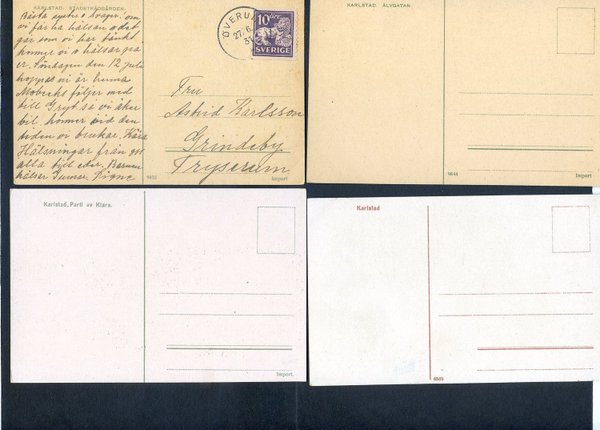 KARLSTAD. STADSTRÄDGÅRDEN.
Bästa syster o svåger. om
vi får ha hälsan o det
går som vi har tänkt
kommer vi o hälsar på
er. Söndagen den 12 juli
hoppas ni är hemma
följer med
till Gryt så vi åker
bil kommer vid den
tiden vi brukar. Kära
Hälsningar från oss
alla till eder. Barnen
hälsar Signe
ÖVERUM
27.6.
31
10 ÖRE
SVERIGE
Fru
Astrid Karlsson
Grindeby.
Fryserum.
9852
Import
KARLSTAD. ÄLVGATAN.
Import
Karlstad, Parti av Klara.
Import.
Karlstad